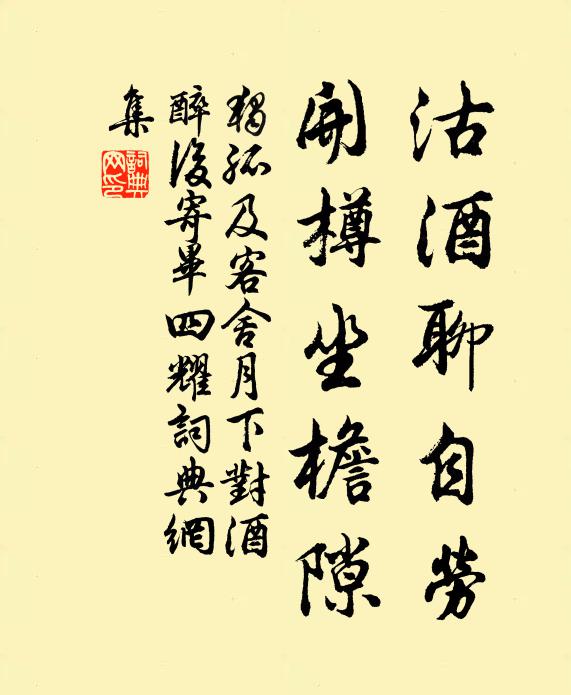 沽酒聊自勞
開樽坐檐隙
獨孤及客舍月下對酒
醉後寄畢四耀詞典網
集
詞典網印